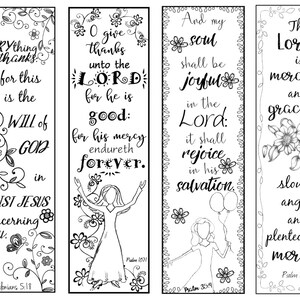 thing
thanks
for this
is the
WILL of
GOD
in
JESUS
5:18
O give
thanks
unto the
LORD
for he is
good:
for his mercy
endureth
forever.
Psalm
And my
soul
shall be
joyful
in the
Lord:
it shall
rejoice
in his
salvation.
Psalm 35:9
Lor
is
merc
and
grac
slow
ang
and
plente
mer
Psalm